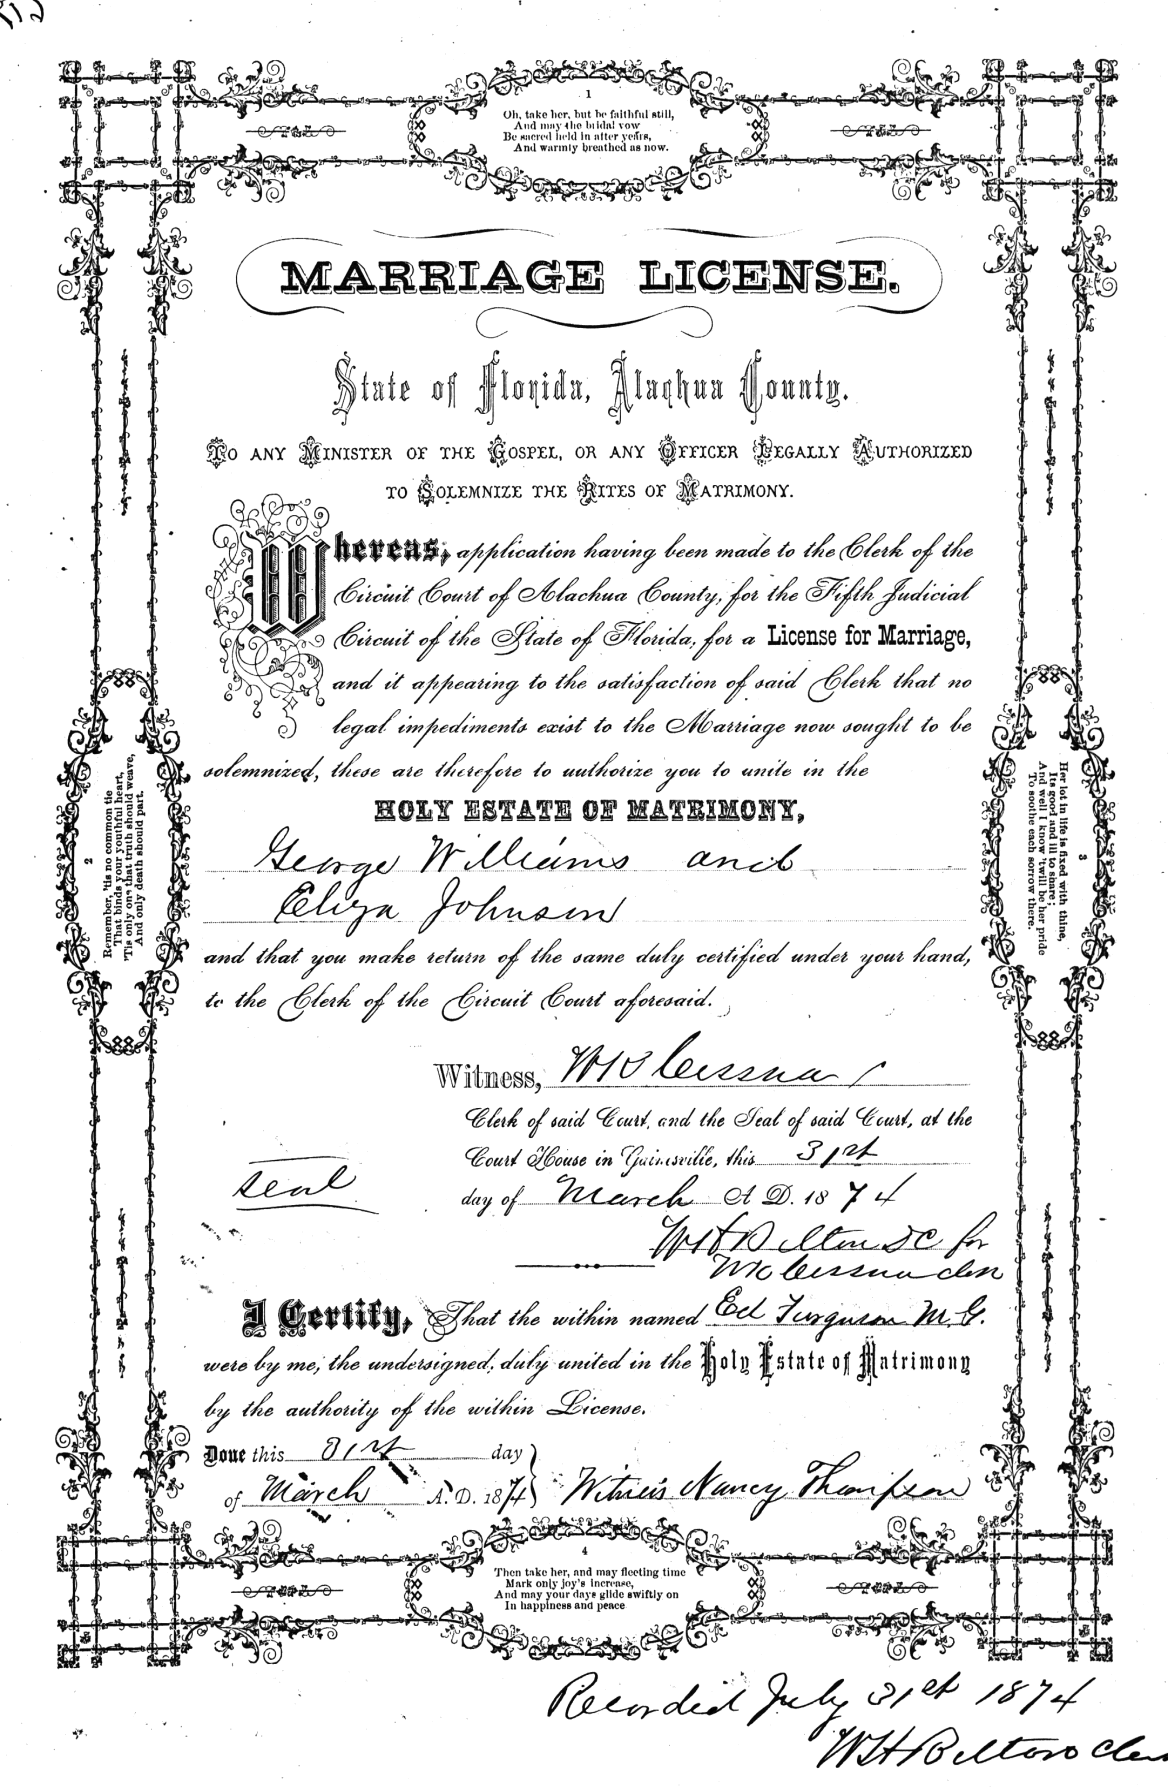 1
Oh, take her, but be faithful still,
And may the bridal vow
Be sacred held in after years,
And warmly breathed as now.
MARRIAGE LICENSE.
State of Florida, Alachua County.
TO ANY MINISTER OF THE GOSPEL, OR ANY OFFICER LEGALLY AUTHORIZED
TO SOLEMNIZE THE RITES OF MATRIMONY.
Whereas, application having been made to the Clerk of the
Circuit Court of Alachua County, for the Fifth Judicial
Circuit of the State of Florida, for a License for Marriage,
and it appearing to the satisfaction of said Clerk that no
legal impediments exist to the Marriage now sought to be
solemnized, these are therefore to authorize you to unite in the
HOLY ESTATE OF MATRIMONY,
George Williams and
Eliza Johnson
and that you make return of the same duly certified under your hand,
to the Clerk of the Circuit Court aforesaid.
2
Remember, 'tis no common tie
That binds your youthful heart,
'Tis only one that truth should weave,
And only death should part.
3
Her lot in life is fixed with thine,
Its good and ill to share;
And well I know 'twill be her pride
To soothe each sorrow there.
Witness, WK Cessna
Clerk of said Court, and the Seal of said Court, at the
Court House in Gainesville, this 31st
seal
day of March A D. 1874
WH Belton DC for
WK Cessna Clerk
I Certify, That the within named Ed Furguson M. G.
were by me, the undersigned, duly united in the Holy Estate of Matrimony
by the authority of the within License.
Done this 31st day
of March A. D. 1874 } Witness Nancy Thompson
4
Then take her, and may fleeting time
Mark only joy's increase,
And may your days glide swiftly on
In happiness and peace
Recorded July 31st 1874
WH Belton Clerk